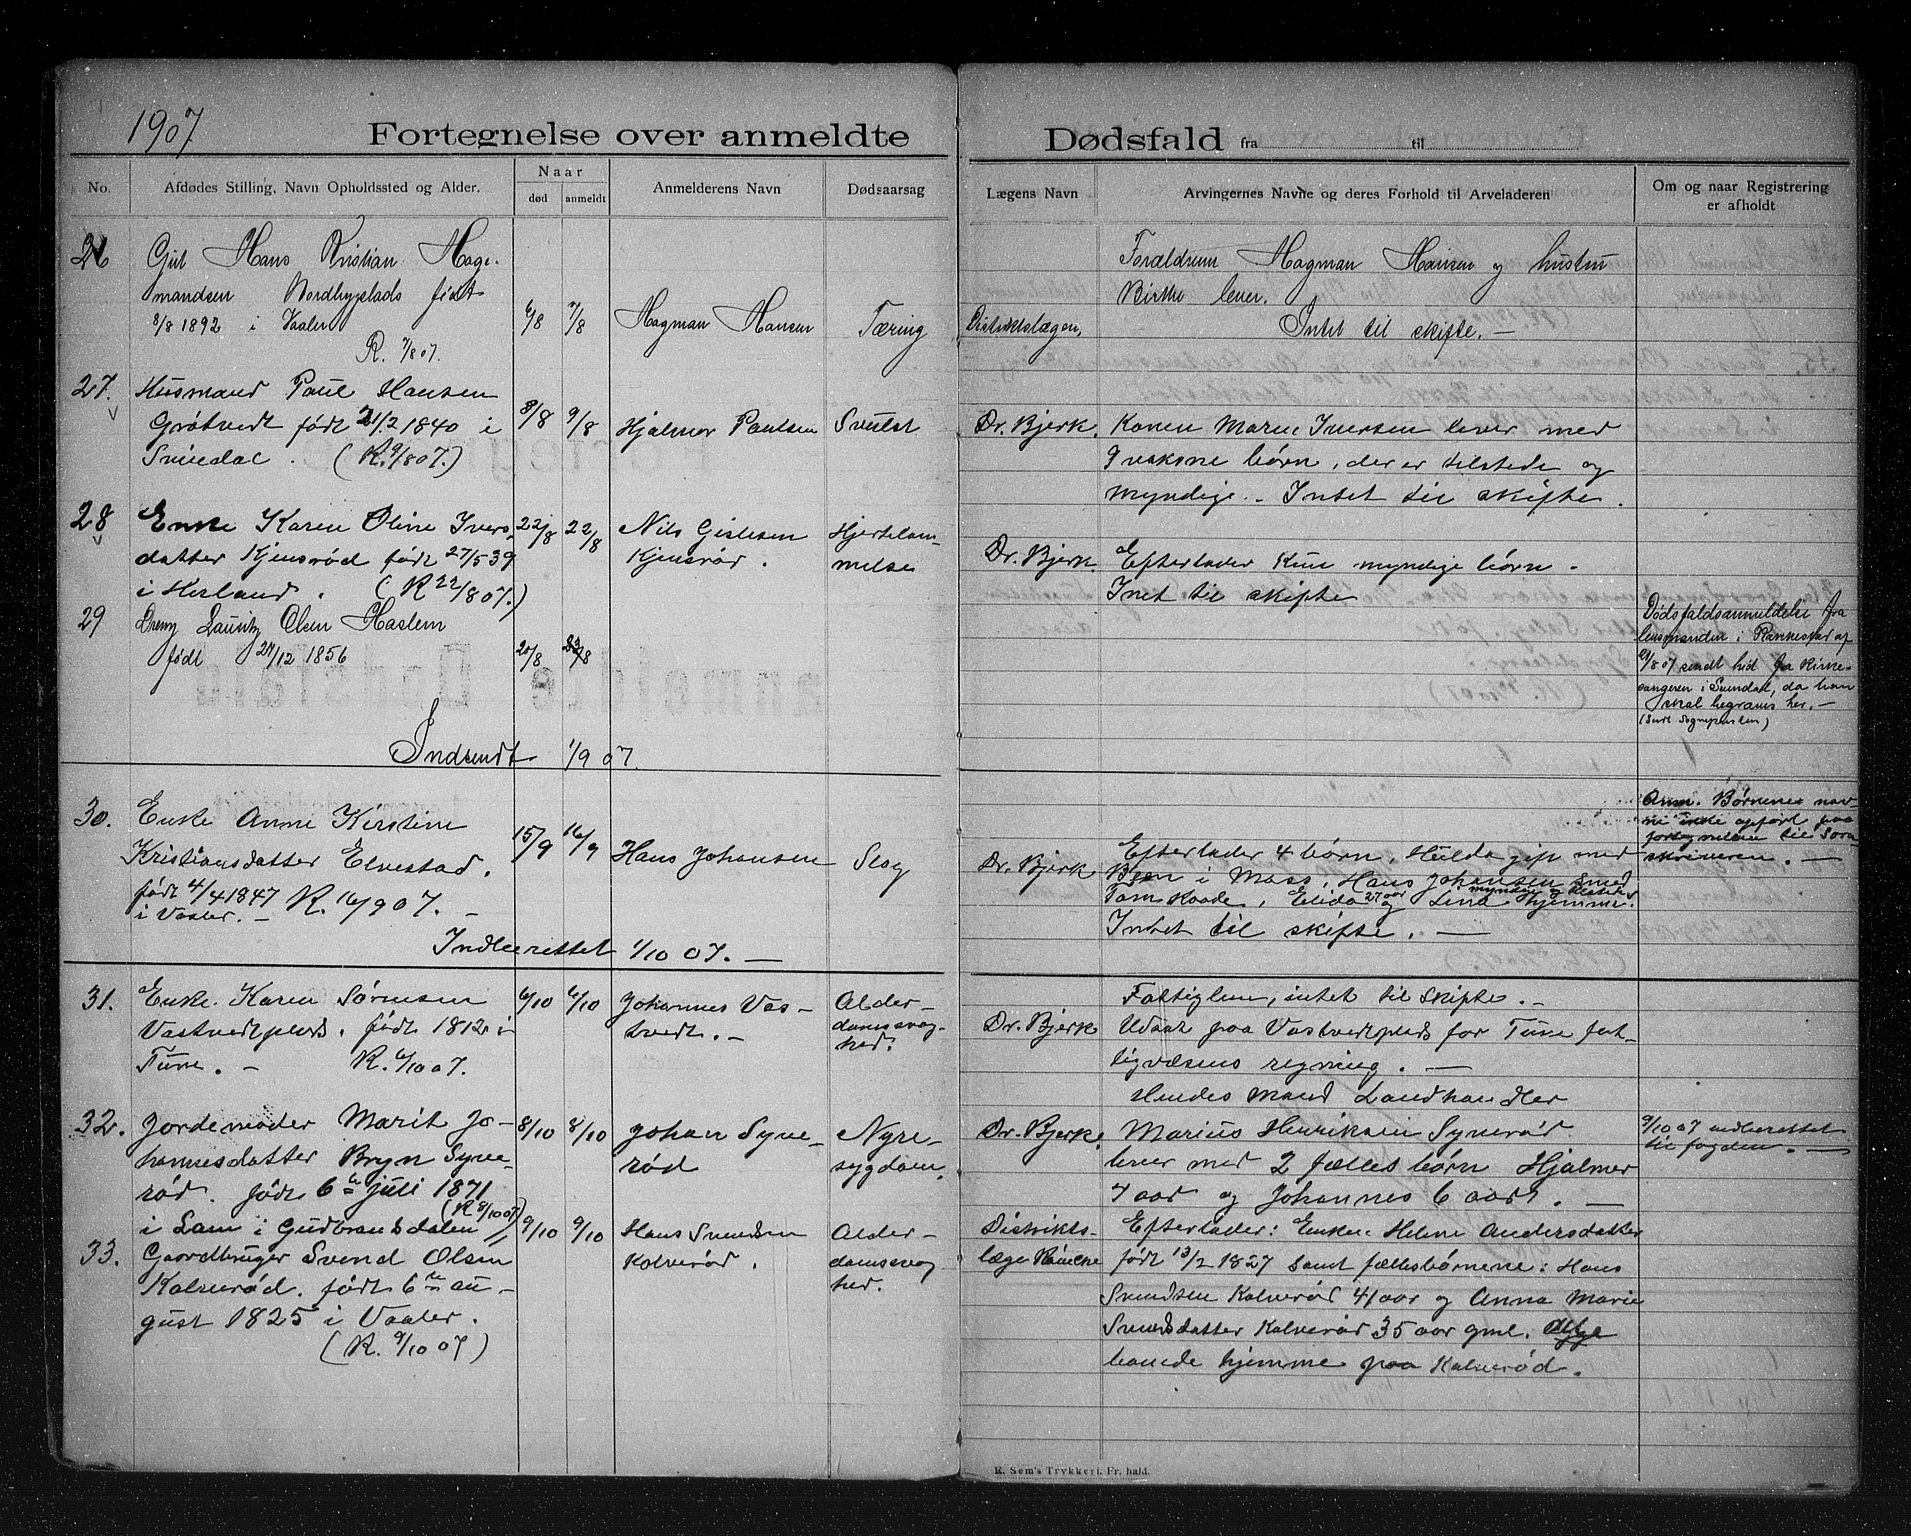 1907
Fortegnelse over anmeldte
Dødsfald fra til
No.
Afdødes Stilling, Navn Opholdssted og Alder.
Naar
død
anmeldt
Anmelderens Navn
Dødsaarsag
Lægens Navn
Arvingernes Navne og deres Forhold til Arveladeren
Om og naar Registrering
er afholdt
26
Gut Hans Kristian Mag-
mandsen Nordbyplads født
8/8 1892 i Vaaler
R. 7/8 07.
6/8
7/8
Magman Hansen
Tæring
Distriktslægen,
Forældrene Magman Hansen og hustru
Birthe lever.
Intet til skifte. —
27.
Husmand Paul Hansen
Grøtvedt født 21/2 1840 i
Svinedal. (R. 9/8 07.)
8/8
9/8
Hjalmer Paulsen
Svulst
Dr. Bjerk.
Konen Marie Iversen lever med
9 voksne børn, der er tilstede og
myndige. - Intet til skifte.
28
Enke Karen Oline Ivers-
datter Kjensrød født 27/5 39
i Herland. (R 22/8 07.)
22/8
22/8
Nils Gislesen
Kjensrød.
Hjertelam-
melse
Dr. Bjerk.
Efterlader kun myndige børn.
Inet til skifte
29
Dreng Lauritz Olsen Haslem
født 24/12 1856
20/8
23/8
Dødsfaldsanmeldelse fra
lensmanden i Rakkestad af
21/8 07 sendt hid fra kirke-
sangeren i Svindal, da han
skal begraves her. —
(Sendt Sognepresten)
Indsendt 1/9 07.
30.
Enke Anne Kirstine
Kristiansdatter Elvestad.
født 4/4 1847
i Vaaler. - R. 16/9 07. -
15/9
16/9
Hans Johansen
Slag
Dr. Bjerk
Efterlader 4 børn, Hulda gift med
i Moss, Hans Johansen Smed
Tom Raade, Elida 27 aar og Lina myndige og tilstede hjemme.
Intet til skifte. —
Anm. Børnenes nav-
ne ikke opført paa
fortegnelsen til Soren
skriveren. —
Indberettet 1/10 07. —
31.
Enke Karen Sørensen
Vastvedtplads. født 1812 i
Tune. - R. 6/10 07.
6/10
6/10
Johannes Vas-
tvedt. -
Alder-
domssvag-
hed.
Dr. Bjerk
Fattiglem, intet til skifte. -
Udsat paa Vastvedtplads for Tune fat-
tigvæsens regning. —
32.
Jordemoder Marit Jo-
hannesdatter Bryn Syve-
rød. født 6te juli 1871
i Lom i Gudbrandsdalen (R 8/10 07)
8/10
8/10
Johan Syve-
rød
Nyre-
sygdom.
Dr. Bjerk.
Hendes mand Landhandler
Marius Henriksen Syverød
lever med 2 fælles børn Hjalmar
7 aar og Johannes 6 aar. —
9/10 07 indberettet
til fogden. —
33.
Gaardbruger Svend Olsen
Kolverød. født 6te au-
gust 1825 i Vaaler.
(R. 9/10 07)
9/10
9/10
Hans Svendsen
Kolverød.
Alder-
domssvag-
hed.
Distrikts-
læge
Efterlader: Enke: Helene Andersdatter
født 13/2 1827 samt fællesbørnene: Hans
Svendsen Kolverød 41 aar og Anna Marie
Svendsdatter Kolverød 35 aar gml. Begge
boende hjemme paa Kolverød.
E. Sem's Trykkeri. Fr. hald.